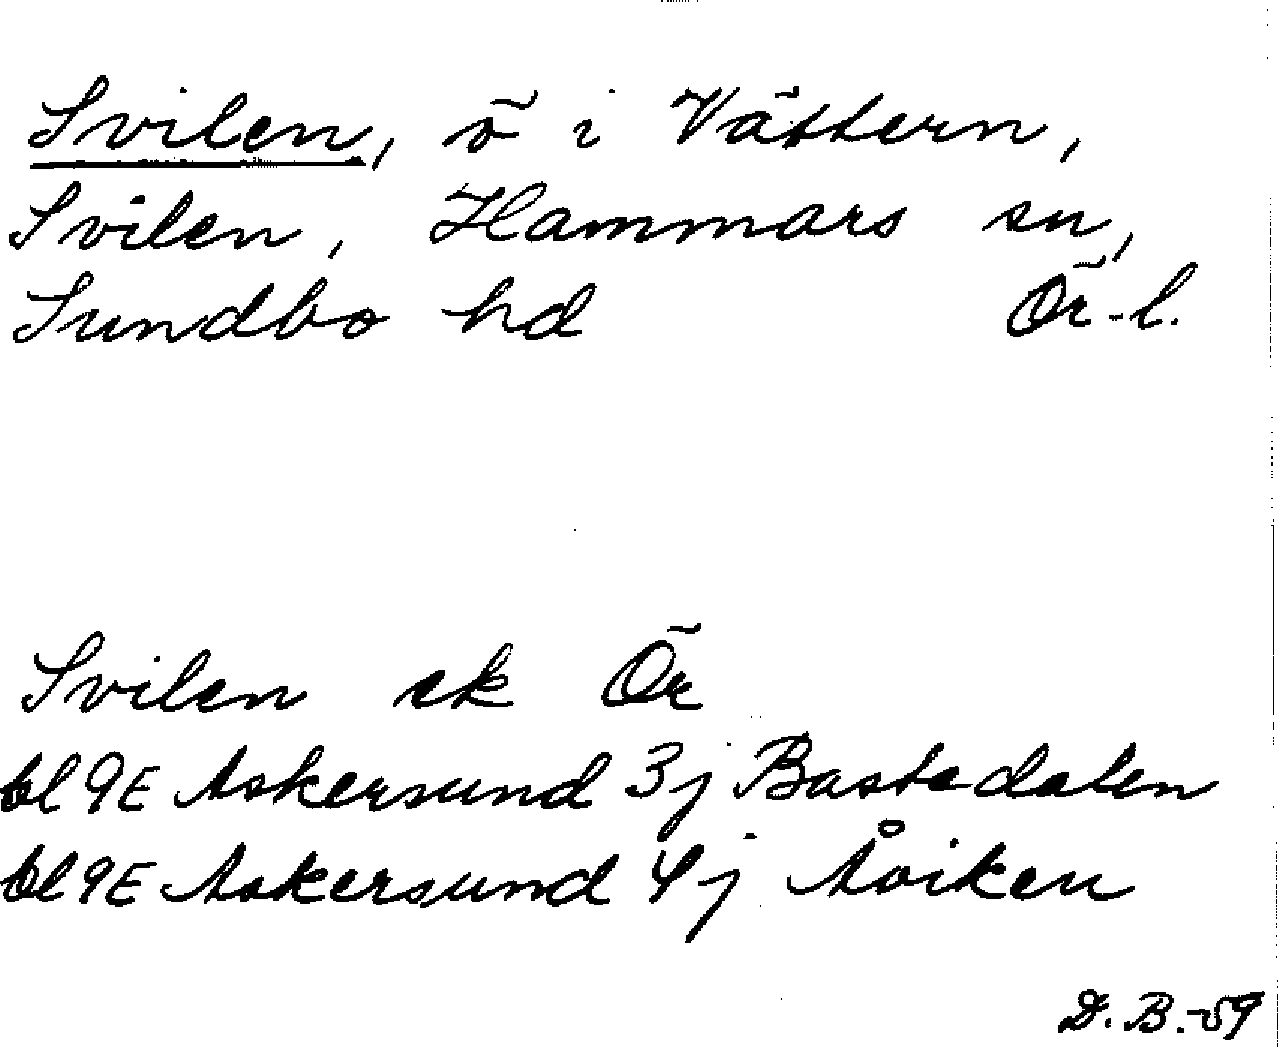 Svilen, ö i Vättern,
Svilen, Hammars sn,
Sundbo hd Ör-l.
Svilen ek Ör
bl 9E Askersund 3j Bastedalen
bl 9E Askersund 4j Åviken
D.B.-59